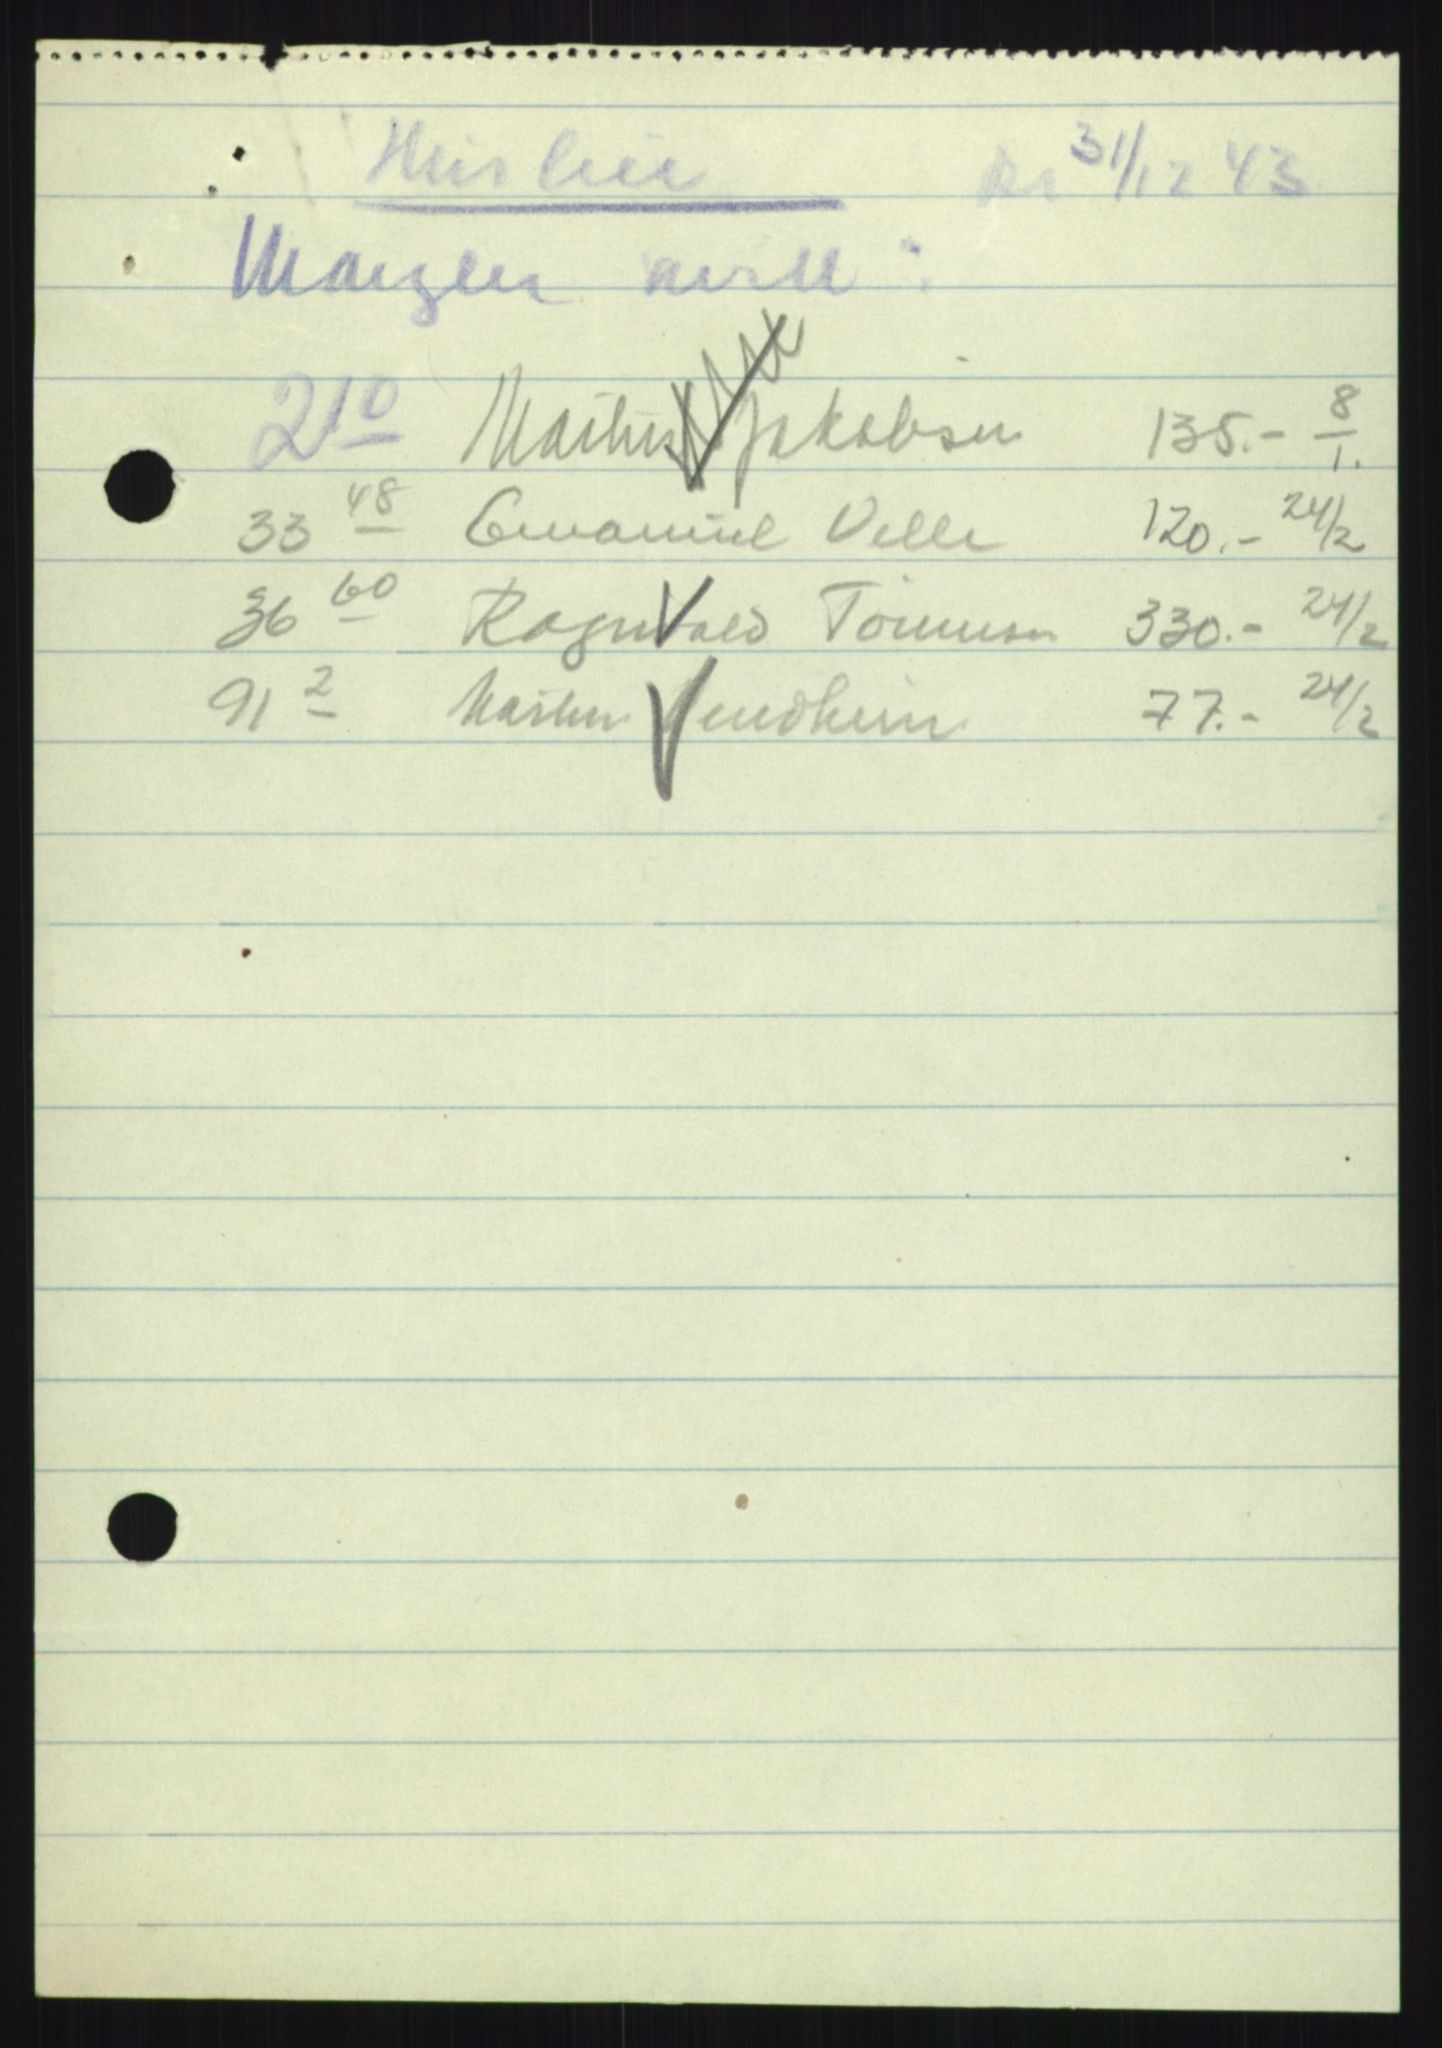 Husleie 31/12 43
Mangler avsll :
2 10 Martin Jakobsen 135.- 8/1.
33 48 Emanuel Velle 120.- 24/2
36 60 Ragnvald Tømmer 330.- 24/2
91 2 Martin 77.- 24/2